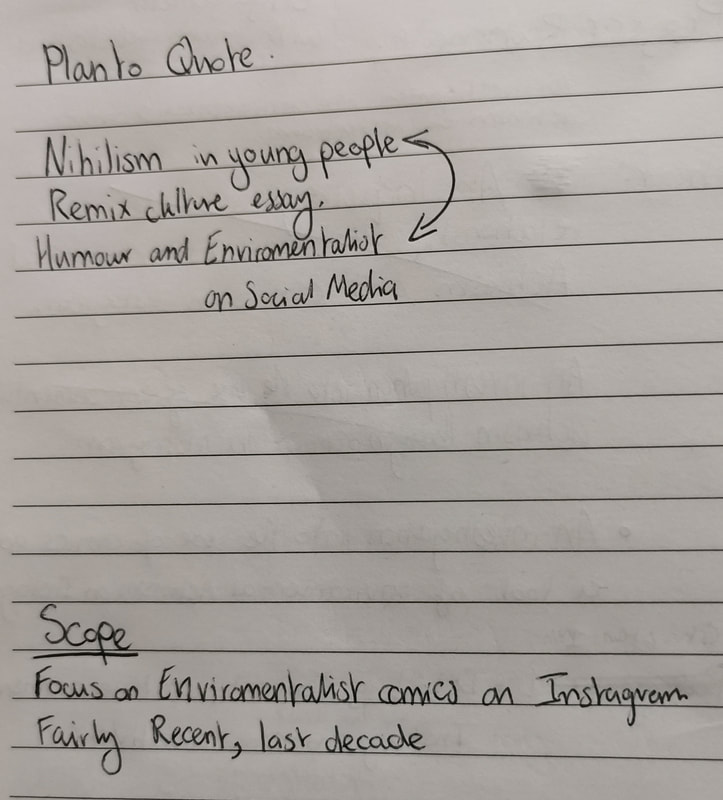 Plan to Quote.
Nihilism in young people
Remix culture essay.
Humour and Enviromentalist
on Social Media
Scope
Focus on Enviromentalist comics on Instagram
Fairly Recent, last decade